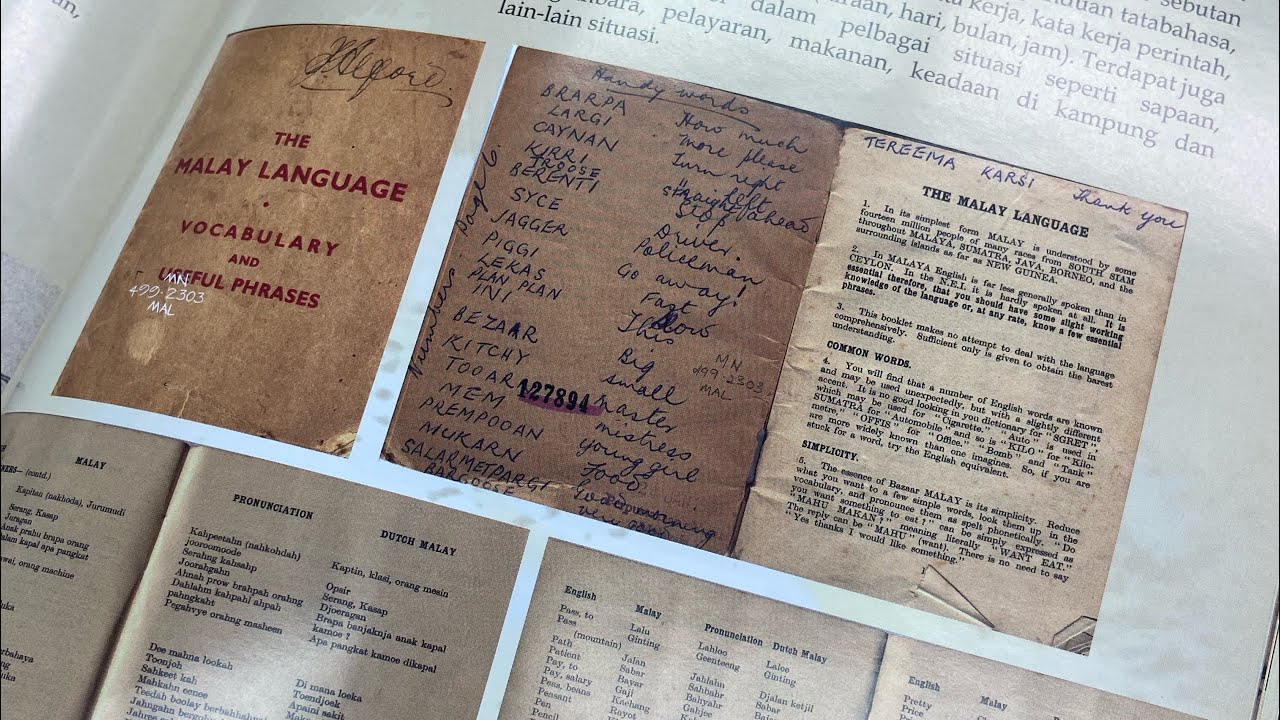 sebutan
tatabahasa,
kerja, kata kerja perintah,
hari, bulan, jam). Terdapat juga
dalam pelbagai situasi seperti sapaan,
pelayaran, makanan, keadaan di kampung dan
lain-lain situasi.
THE
MALAY LANGUAGE
VOCABULARY
AND
USEFUL PHRASES
MN
499.2303
MAL
Handy words
BRARPA How much
LARGI More please
CAYNAN Turn right
KIRRI left
TROOSE straight ahead
BERENTI Stop
SYCE Driver.
JAGGER Policeman
PIGGI Go away!
LEKAS Fast
PLAN PLAN Slow
INI This
BEZAAR Big
KITCHY small
TOOAR master
MEM mistress
PREMPOOAN young girl
MUKARN Food
SALARMETPARGI Good morning
BARGOOSE very good
Numbers page 6.
127894
MN
499.2303
MAL
TEREEMA KARSI Thank you
THE MALAY LANGUAGE
1. In its simplest form MALAY is understood by some
fourteen million people of many races from SOUTH SIAM
throughout MALAYA, SUMATRA, JAVA, BORNEO, and the
surrounding islands as far as NEW GUINEA.
2. In MALAYA English is far less generally spoken than in
CEYLON. In the N.E.I. it is hardly spoken at all. It is
essential therefore, that you should have some slight working
knowledge of the language or, at any rate, know a few essential
phrases.
3. This booklet makes no attempt to deal with the language
comprehensively. Sufficient only is given to obtain the barest
understanding.
COMMON WORDS.
4. You will find that a number of English words are known
and may be used unexpectedly, but with a slightly different
accent. It is no good looking in you dictionary for "SGRET",
which may be used for "Cigarette." "Auto" is used in
SUMATRA for "Automobile" and so is "KILO" for "Kilo-
metre," "OFFIS" for "Office." "Bomb" and "Tank"
are more widely known than one imagines. So, if you are
stuck for a word, try the English equivalent.
SIMPLICITY.
5. The essence of Bazaar MALAY is its simplicity. Reduce
what you want to a few simple words, look them up in the
vocabulary, and pronounce them as spelt phonetically. "Do
you want something to eat?" can be simply expressed as
"MAHU MAKAN?" meaning literally "WANT EAT."
The reply can be "MAHU" (want). There is no need to say
"Yes thanks I would like something."
1
MALAY
(contd.)
Kapitan (nakhoda), Jurumudi
Serang, Kasap
Juragan
Anak prahu brapa orang
dalam kapal apa pangkat
orang machine
PRONUNCIATION DUTCH MALAY
Kahpeetahn (nahkohdah) Kaptin, klasi, orang mesin
jooroomoode Opsir
Serahng kahsahp Serang, Kasap
Joorahgahn Djoeragan
Ahnah prow brahpah orahng Brapa banjaknja anak kapal
Dahlahm kahpahl ahpah kamoe?
pahngkaht Apa pangkat kamoe dikapal
Pegahvye orahng masheen
Dee mahna lookah Di mana loeka
Toonjoh Toendjoek
Sahkeet kah Apaini sakit
Mahkahn eenee
Teedah boolay
English Malay Pronunciation Dutch Malay
Pass, to Lalu Lahloo Laloe
Pass (mountain) Ginting Geenteeng Ginting
Path Jalan Jahlahn Djalan ketjil
Patient Sabar Sahbahr Sabar
Pay, to Bayar Bahyahr
Pay, salary Gaji Gahjee
Peas, beans Kachang
Peasant Rayot
Pen
Pencil
English Malay
Pretty
Price